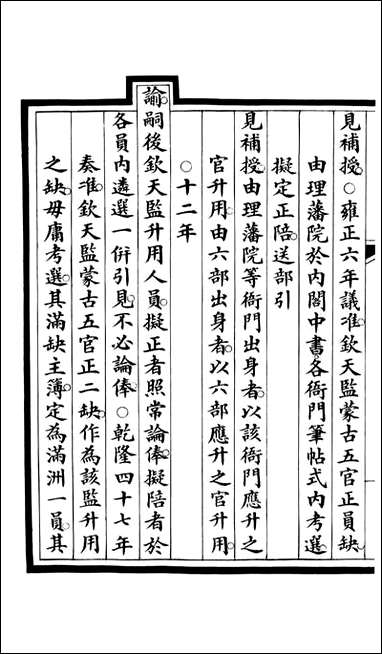 見補授○雍正六年議准欽天監蒙古五官正員缺
由理藩院於內閣中書各衙門筆帖式內考選
擬定正陪送部引
見補授由理藩院等衙門出身者以該衙門應升之
官升用由六部出身者以六部應升之官升用
○十二年
諭嗣後欽天監升用人員擬正者照常論俸擬陪者於
各員內遴選一併引見不必論俸○乾隆四十七年
奏准欽天監蒙古五官正二缺作為該監升用
之缺毋庸考選其滿缺主簿定為滿洲一員其